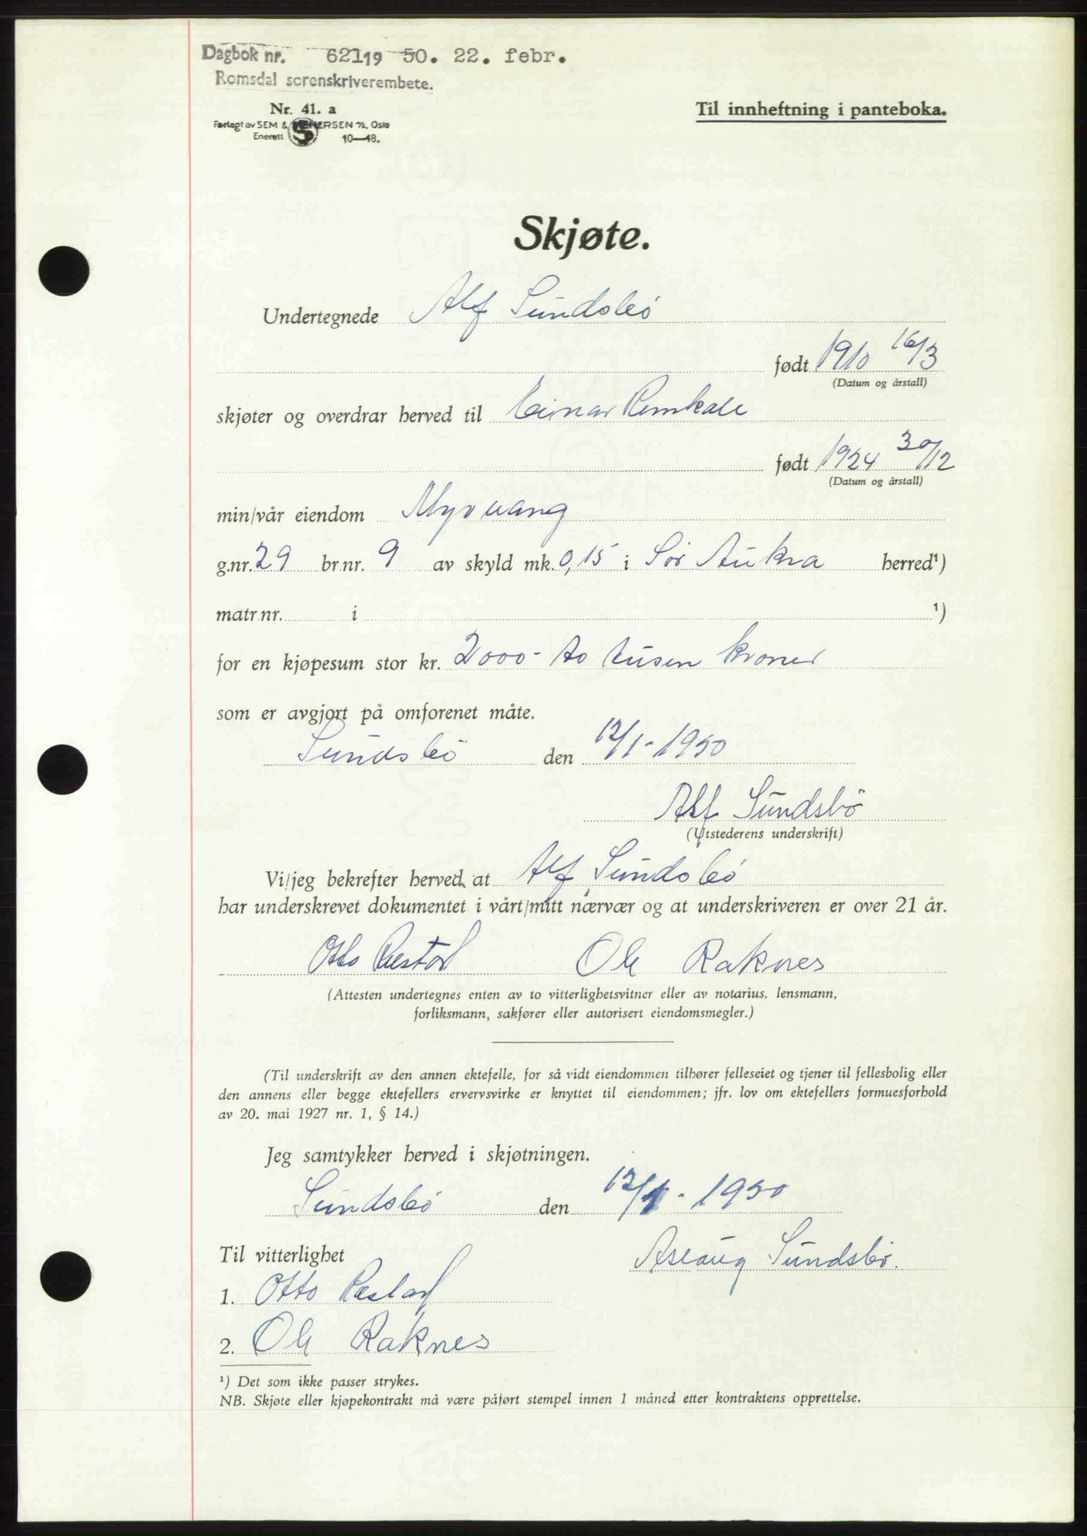 Dagbok nr. 621 19 50. 22. febr.
Romsdal sorenskriverembete.
Nr. 41. a
Forlagt av SEM & STENERSEN A/S, Oslo
Enerett 10—48.
Til innheftning i panteboka.
Skjøte.
Undertegnede Alf Sundsbö
født 1910 16/3
(Datum og årstall)
skjøter og overdrar herved til Einar Remkale
født 1924 30/12
(Datum og årstall)
min/vår eiendom Myrvang
g.nr. 29 br.nr. 9 av skyld mk. 0,15 i Sör Aukra herred¹)
matr.nr. i ¹)
for en kjøpesum stor kr. 2000- to tusen kroner
som er avgjort på omforenet måte.
Sundsbö den 12/1-1950
Alf Sundsbö
(Utstederens underskrift)
Vi/jeg bekrefter herved, at Alf Sundsbö
har underskrevet dokumentet i vårt/mitt nærvær og at underskriveren er over 21 år.
Otto Restad Ole Raknes
(Attesten undertegnes enten av to vitterlighetsvitner eller av notarius, lensmann,
forliksmann, sakfører eller autorisert eiendomsmegler.)
(Til underskrift av den annen ektefelle, for så vidt eiendommen tilhører felleseiet og tjener til fellesbolig eller
den annens eller begge ektefellers ervervsvirke er knyttet til eiendommen; jfr. lov om ektefellers formuesforhold
av 20. mai 1927 nr. 1, § 14.)
Jeg samtykker herved i skjøtningen.
Sundsbö den 12/1-1950
Til vitterlighet Aslaug Sundsbö.
1. Otto Restad
2. Ole Raknes
¹) Det som ikke passer strykes.
NB. Skjøte eller kjøpekontrakt må være påført stempel innen 1 måned etter kontraktens opprettelse.